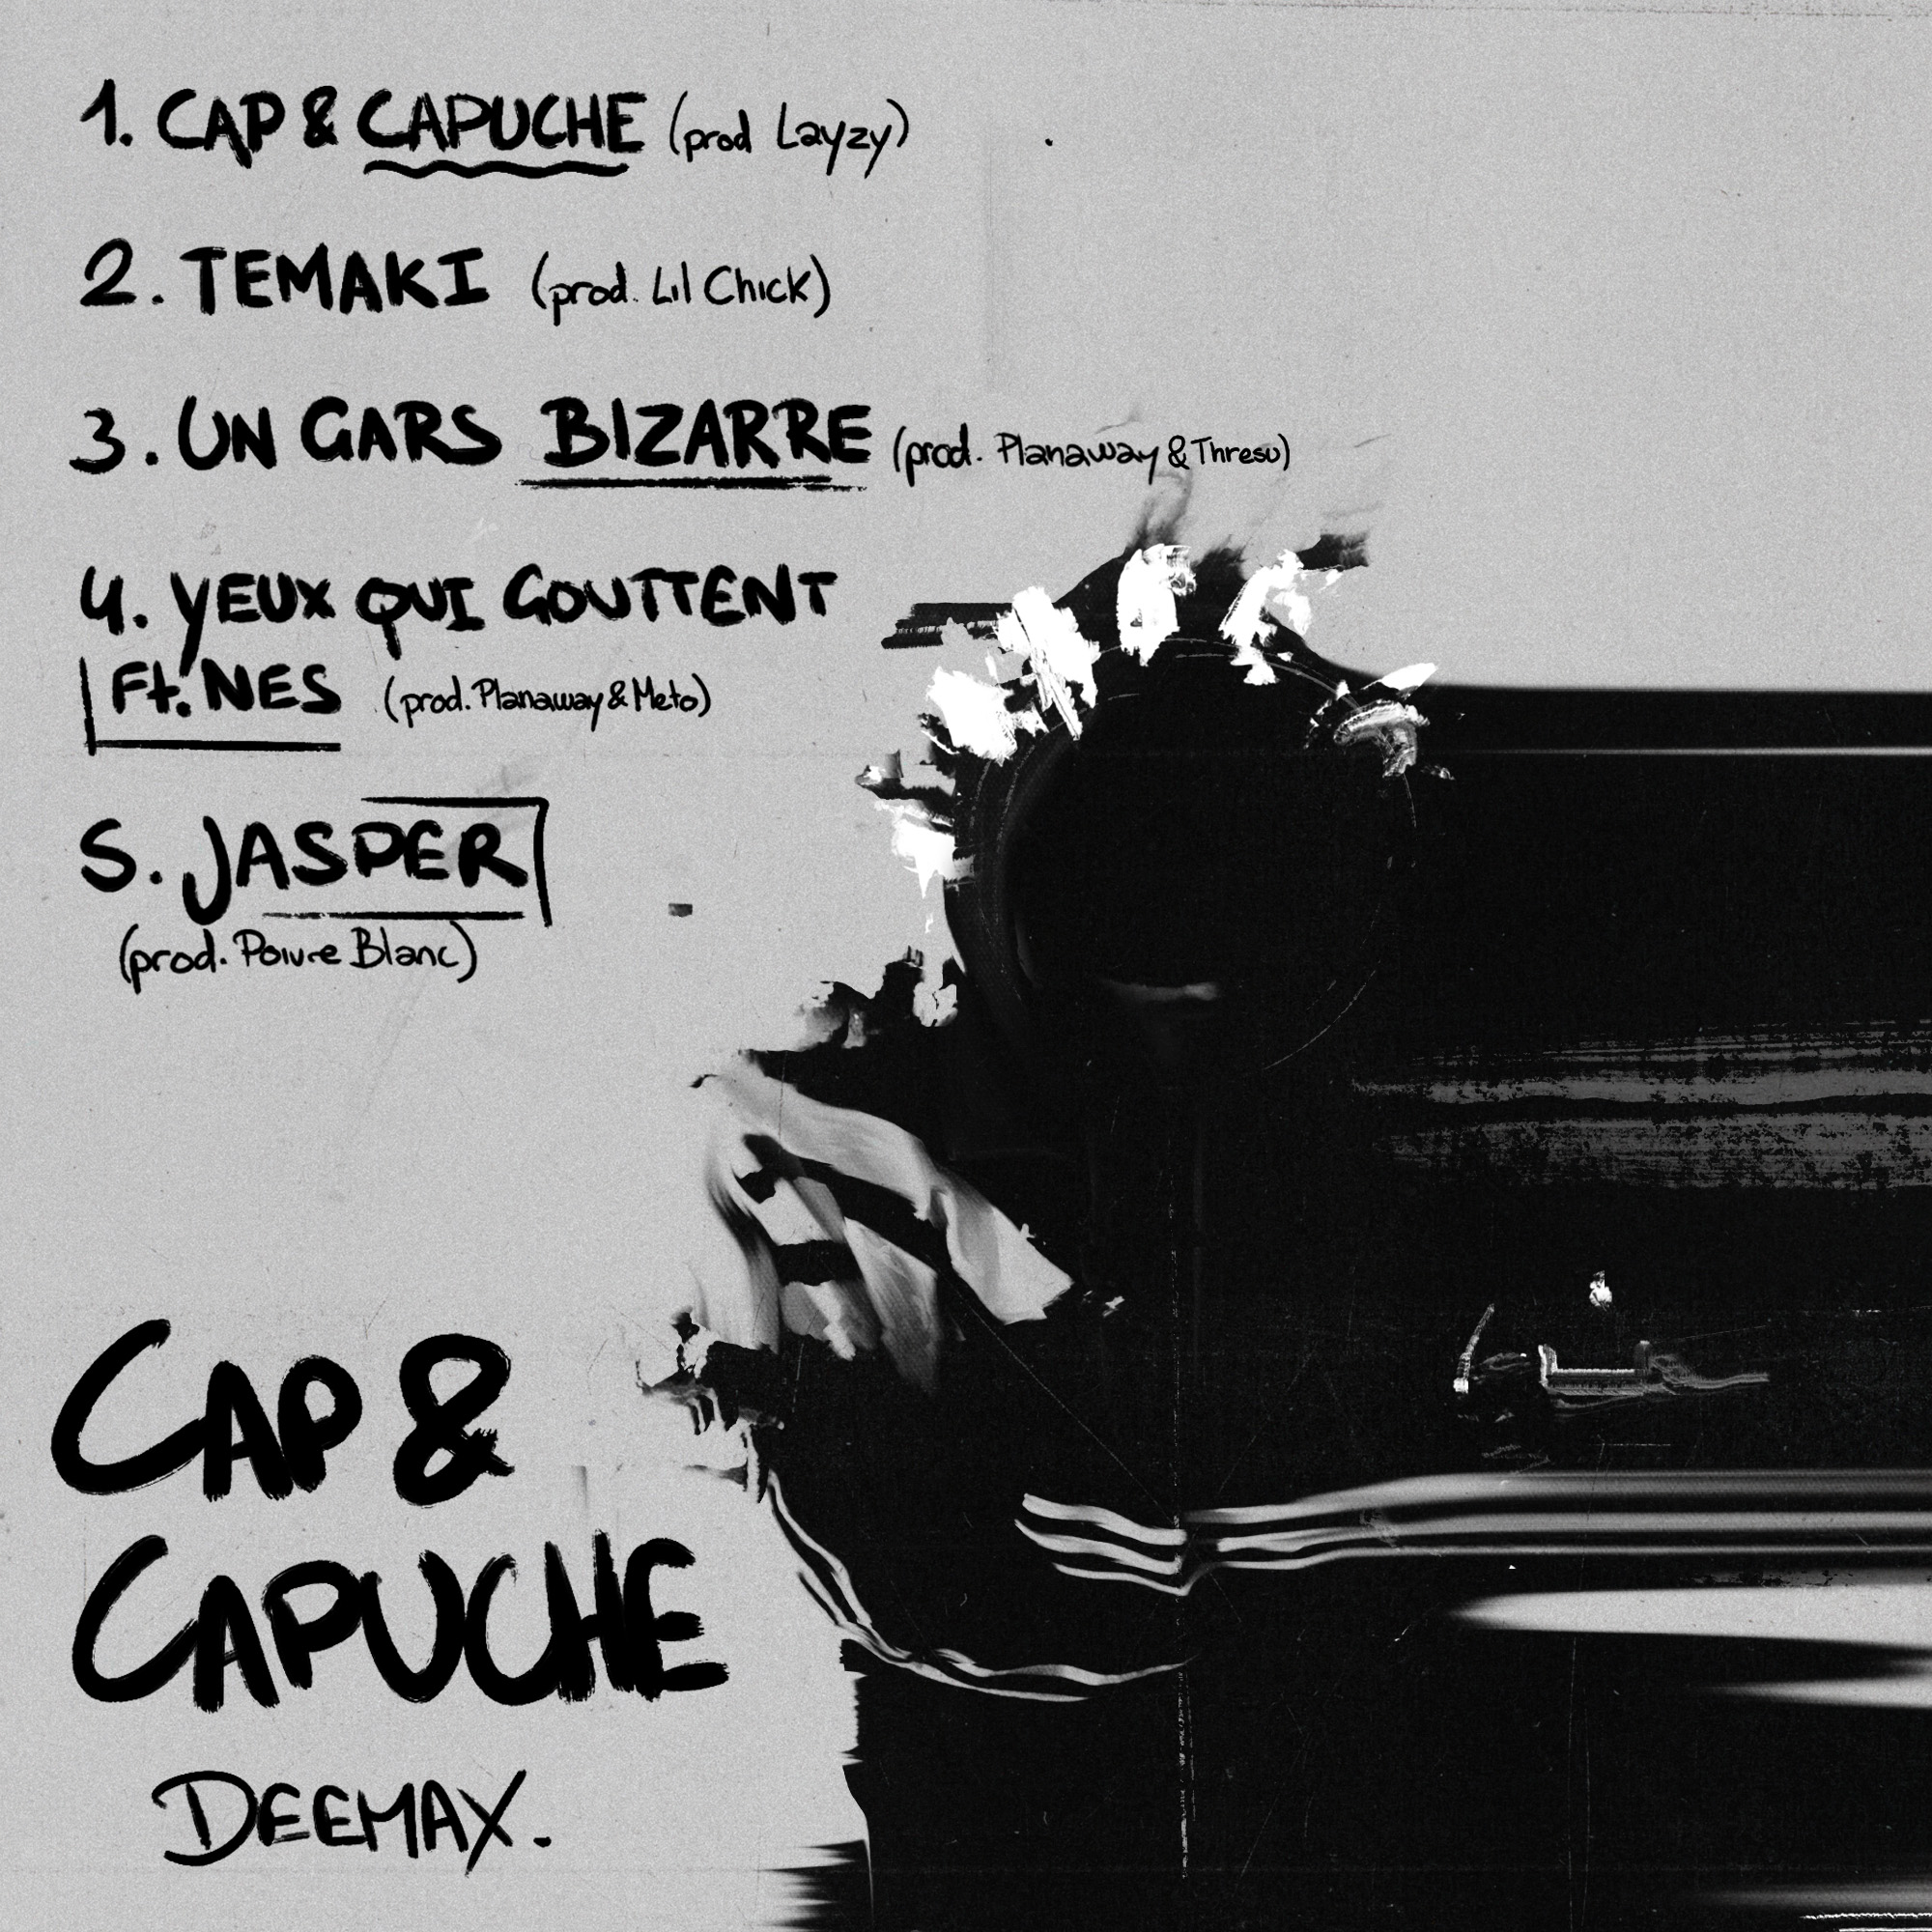 1. CAP & CAPUCHE (prod Layzy)
2. TEMAKI (prod. Lil Chick)
3. UN GARS BIZARRE (prod. Planaway & Thresu)
4. YEUX QUI GOUTTENT
Ft. NES (prod. Planaway & Meto)
5. JASPER
(prod. Poivre Blanc)
CAP &
CAPUCHE
DEEMAX.